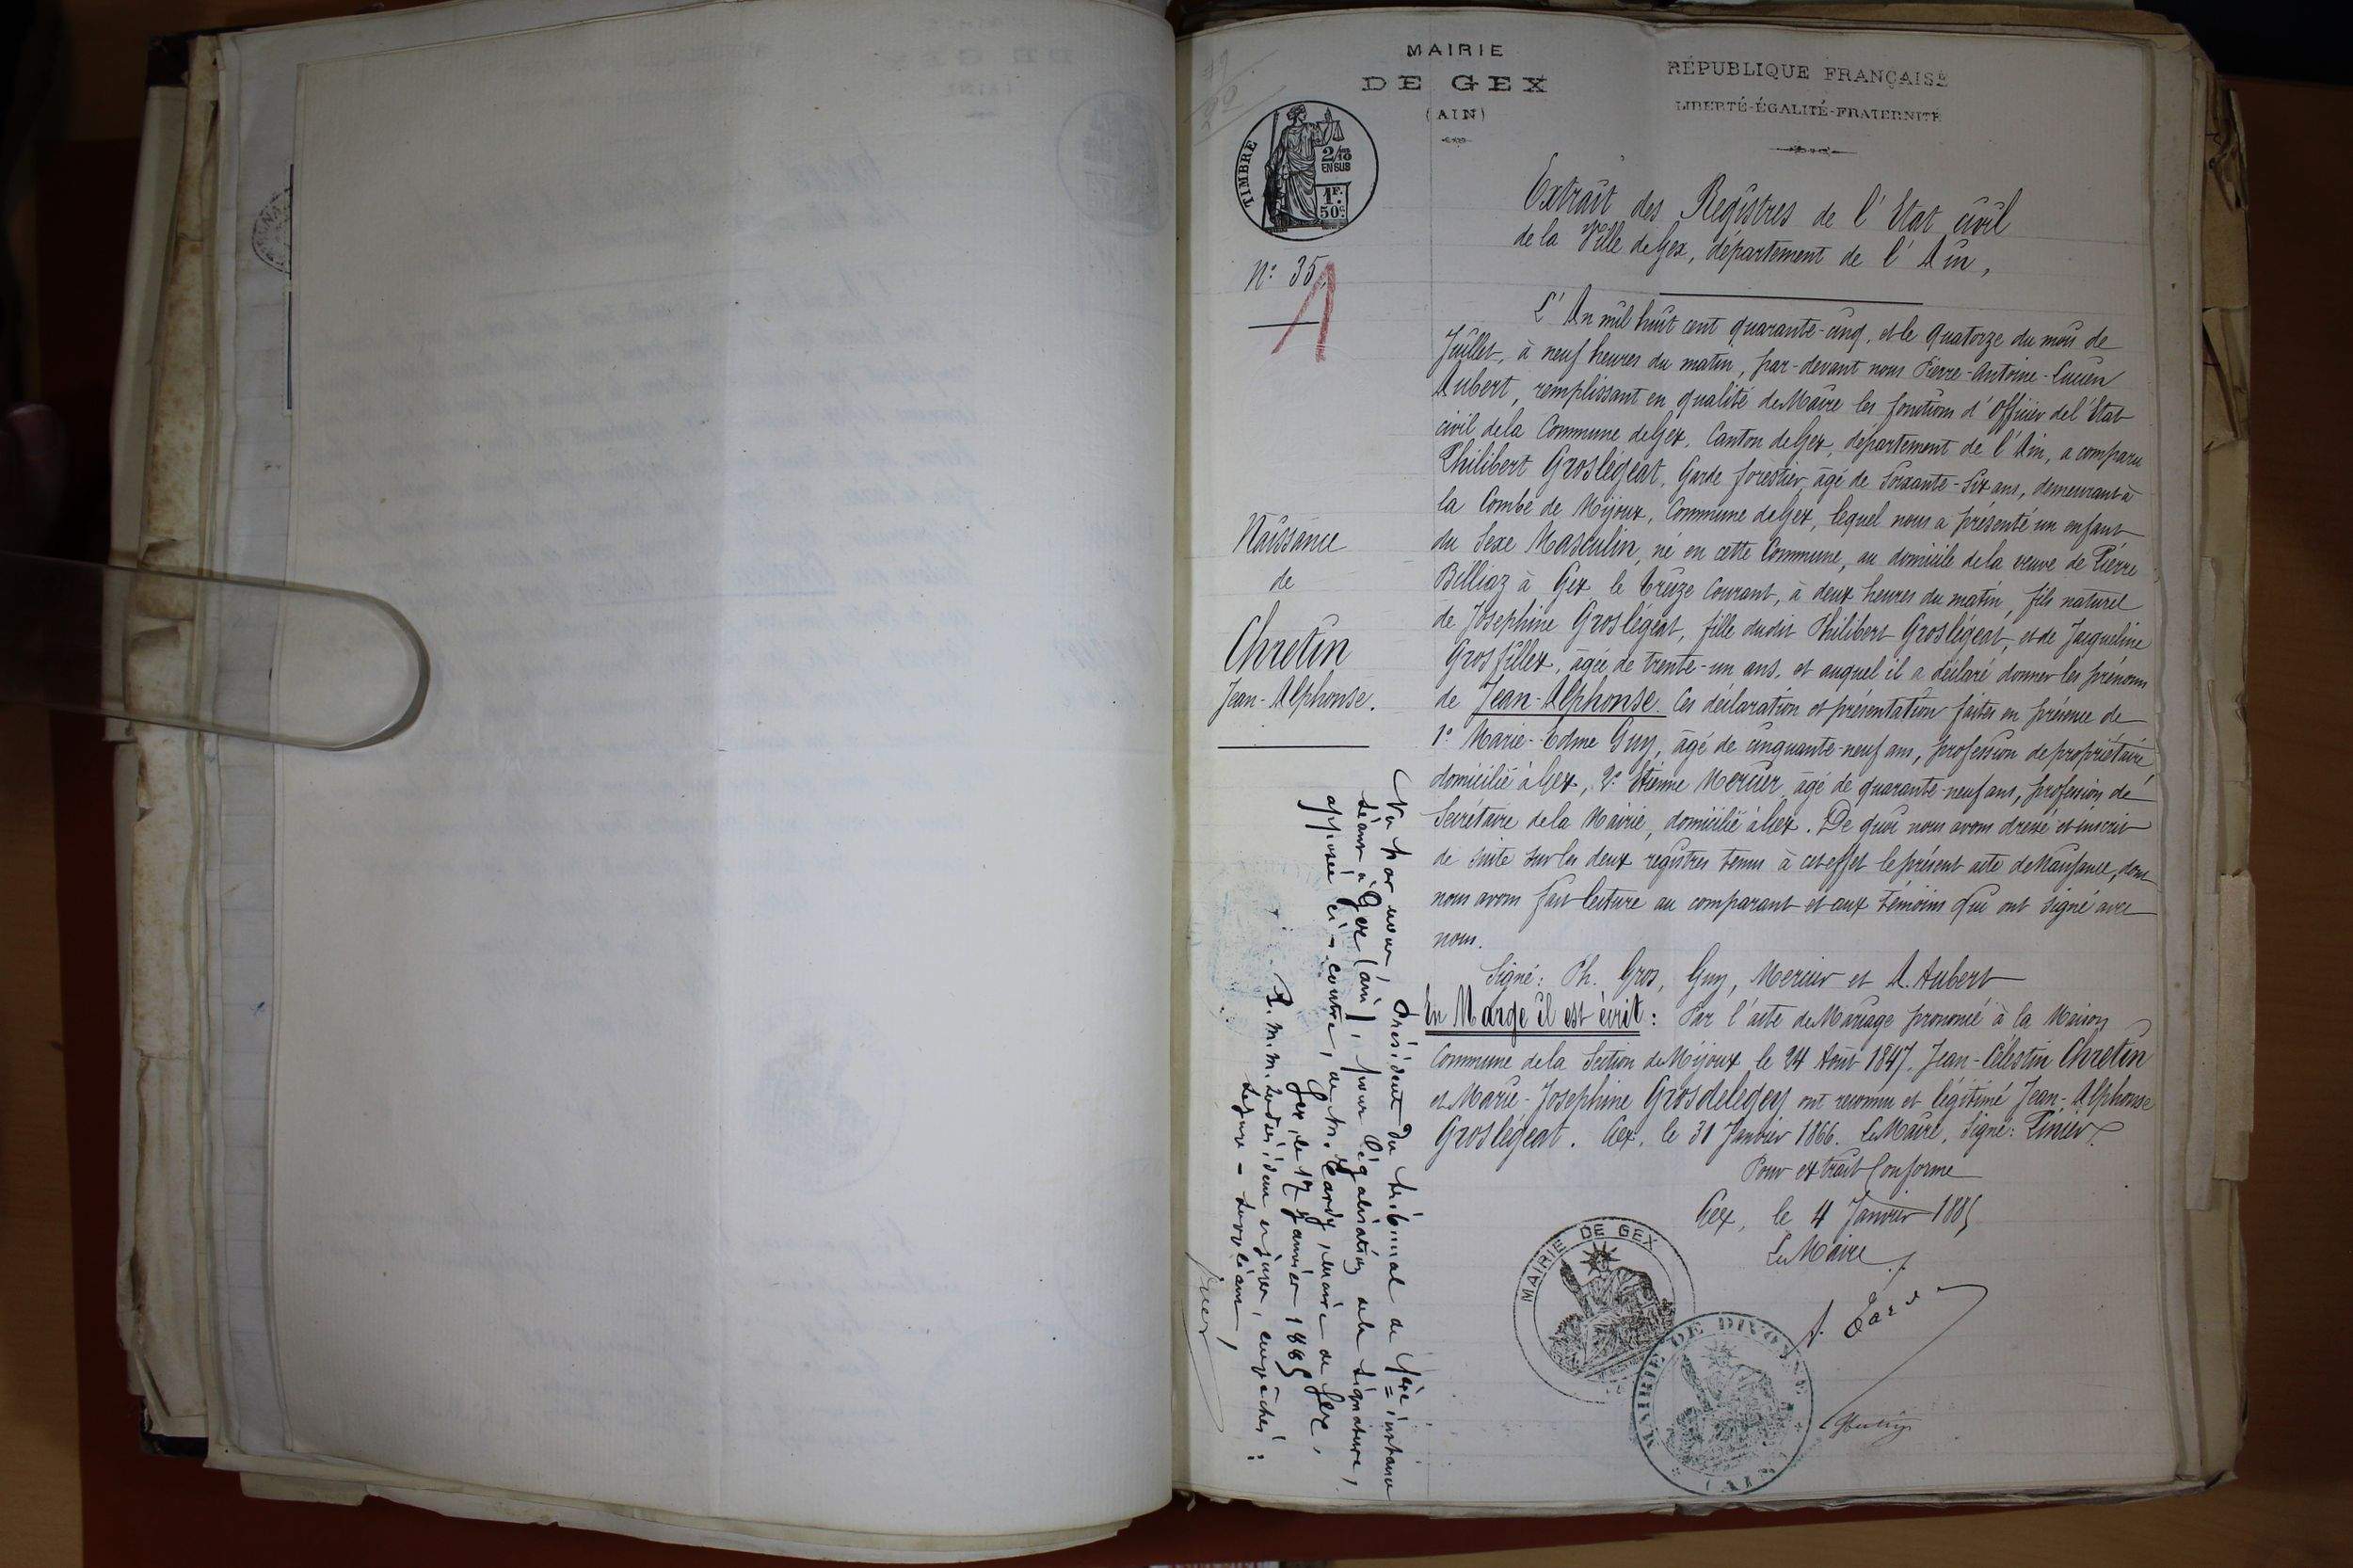 MAIRIE
DE GEX
(AIN)
RÉPUBLIQUE FRANÇAISE
LIBERTÉ-ÉGALITÉ-FRATERNITÉ
TIMBRE
2/10
EN SUS
1F.
50c
Extrait des Registres de l'Etat civil
de la Ville de Gex, département de l'Ain,
N° 35.
1
L'An mil huit cent quarante-cinq, et le quatorze du mois de
Juillet, à neuf heures du matin, par-devant nous Pierre-Antoine-Lucien
Aubert, remplissant en qualité de Maire les fonctions d'Officier de l'Etat
civil de la Commune de Gex, Canton de Gex, département de l'Ain, a comparu
Philibert Groslégeat, Garde forestier âgé de Soixante-Six ans, demeurant à
la Combe de Mijoux, Commune de Gex, lequel nous a présenté un enfant
du Sexe Masculin, né en cette Commune, au domicile de la veuve de Pierre
Billiaz à Gex le treize Courant, à deux heures du matin, fils naturel
de Josephine Groslégeat, fille dudit Philibert Groslégeat, et de Jacqueline
Grosfillex, âgée de trente-un ans, et auquel il a déclaré donner les prénoms
de Jean-Alphonse. Ces déclaration et présentation faites en présence de
1° Marie-Edme Guy, âgé de cinquante-neuf ans, profession de propriétaire
domicilié à Gex, 2° Etienne Mercier, âgé de quarante-neuf ans, profession de
Secrétaire de la Mairie, domicilié à Gex. De quoi nous avons dressé et inscrit
de suite sur les deux registres tenus à cet effet le présent acte de Naissance, dont
nous avons fait lecture au comparant et aux témoins qui ont signé avec
nous.
Signé: Ph. Gros, Guy, Mercier et A. Aubert
En Marge il est écrit: Par l'acte de Mariage prononcé à la Maison
Commune de la Section de Mijoux le 24 Août 1847, Jean-Célestin Chretin
et Marie-Josephine Grosdelegey ont reconnu et légitimé Jean-Alphonse
Groslégeat. Gex, le 31 Janvier 1866. Le Maire, Signé: Pinier.
Pour extrait Conforme
Gex, le 4 Janvier 1885
Le Maire
MAIRIE DE GEX
MAIRIE DE DIVONNE
(AIN)
Naissance
de
Chretin
Jean-Alphonse.
Vu par nous, Président du tribunal de 1ère instance
séant à Gex (ain), pour légalisation de la signature,
apposée ci-contre, de M. maire de Gex,
Gex, le 17 Janvier 1885
P. M. M. les Président et juges, empêchés:
Le juge-suppléant,